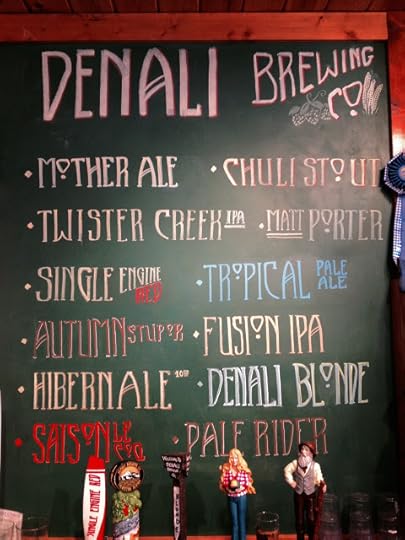 DENALI BREWING CO
• MOTHER ALE • CHULI STOUT
• TWISTER CREEK IPA • MATT PORTER
• SINGLE ENGINE RED • TROPICAL PALE ALE
• AUTUMN STUPOR • FUSION IPA
• HIBERNALE • DENALI BLONDE
• SAISON LE COQ • PALE RIDER
SINGLE ENGINE RED